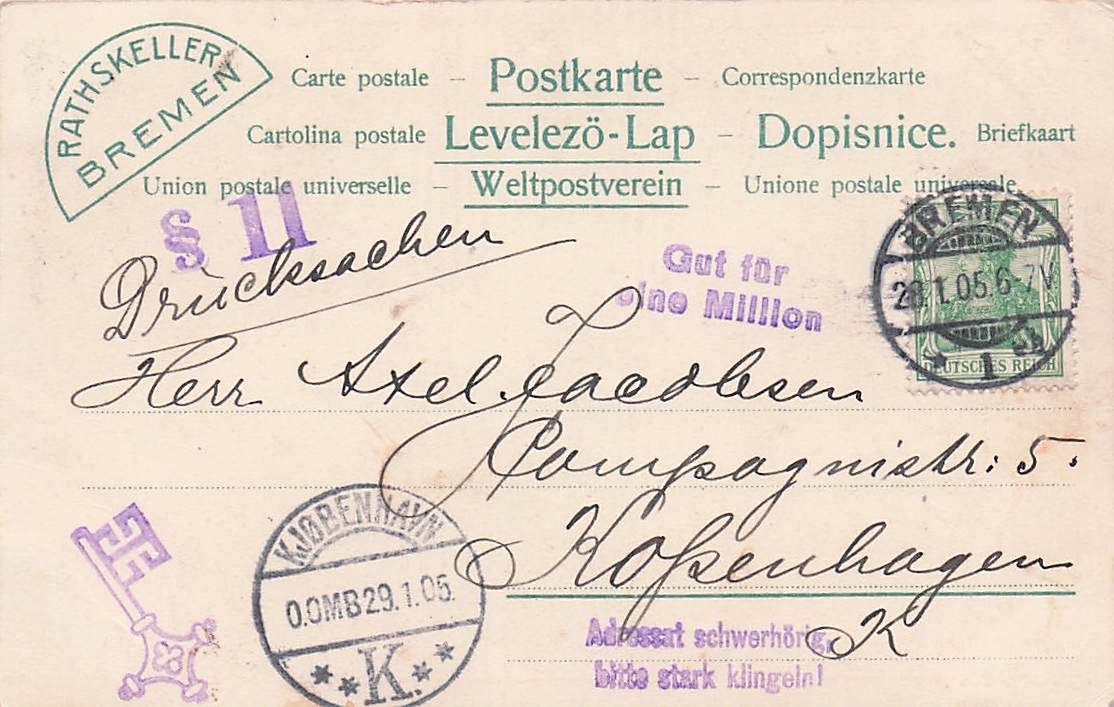 RATHSKELLER
BREMEN
Carte postale – Postkarte – Correspondenzkarte
Cartolina postale Levelezö-Lap – Dopisnice. Briefkaart
Union postale universelle – Weltpostverein – Unione postale universale.
§ 11
Drucksachen
Gut für
eine Million
BREMEN
28.1.05.6-7V
* 1
DEUTSCHES REICH
Herr Axel Jacobsen
Compagnistr: 5.
Kopenhagen
K
KJØBENHAVN
0.OMB 29.1.05.
K.
Adressat schwerhörig,
bitte stark klingeln!